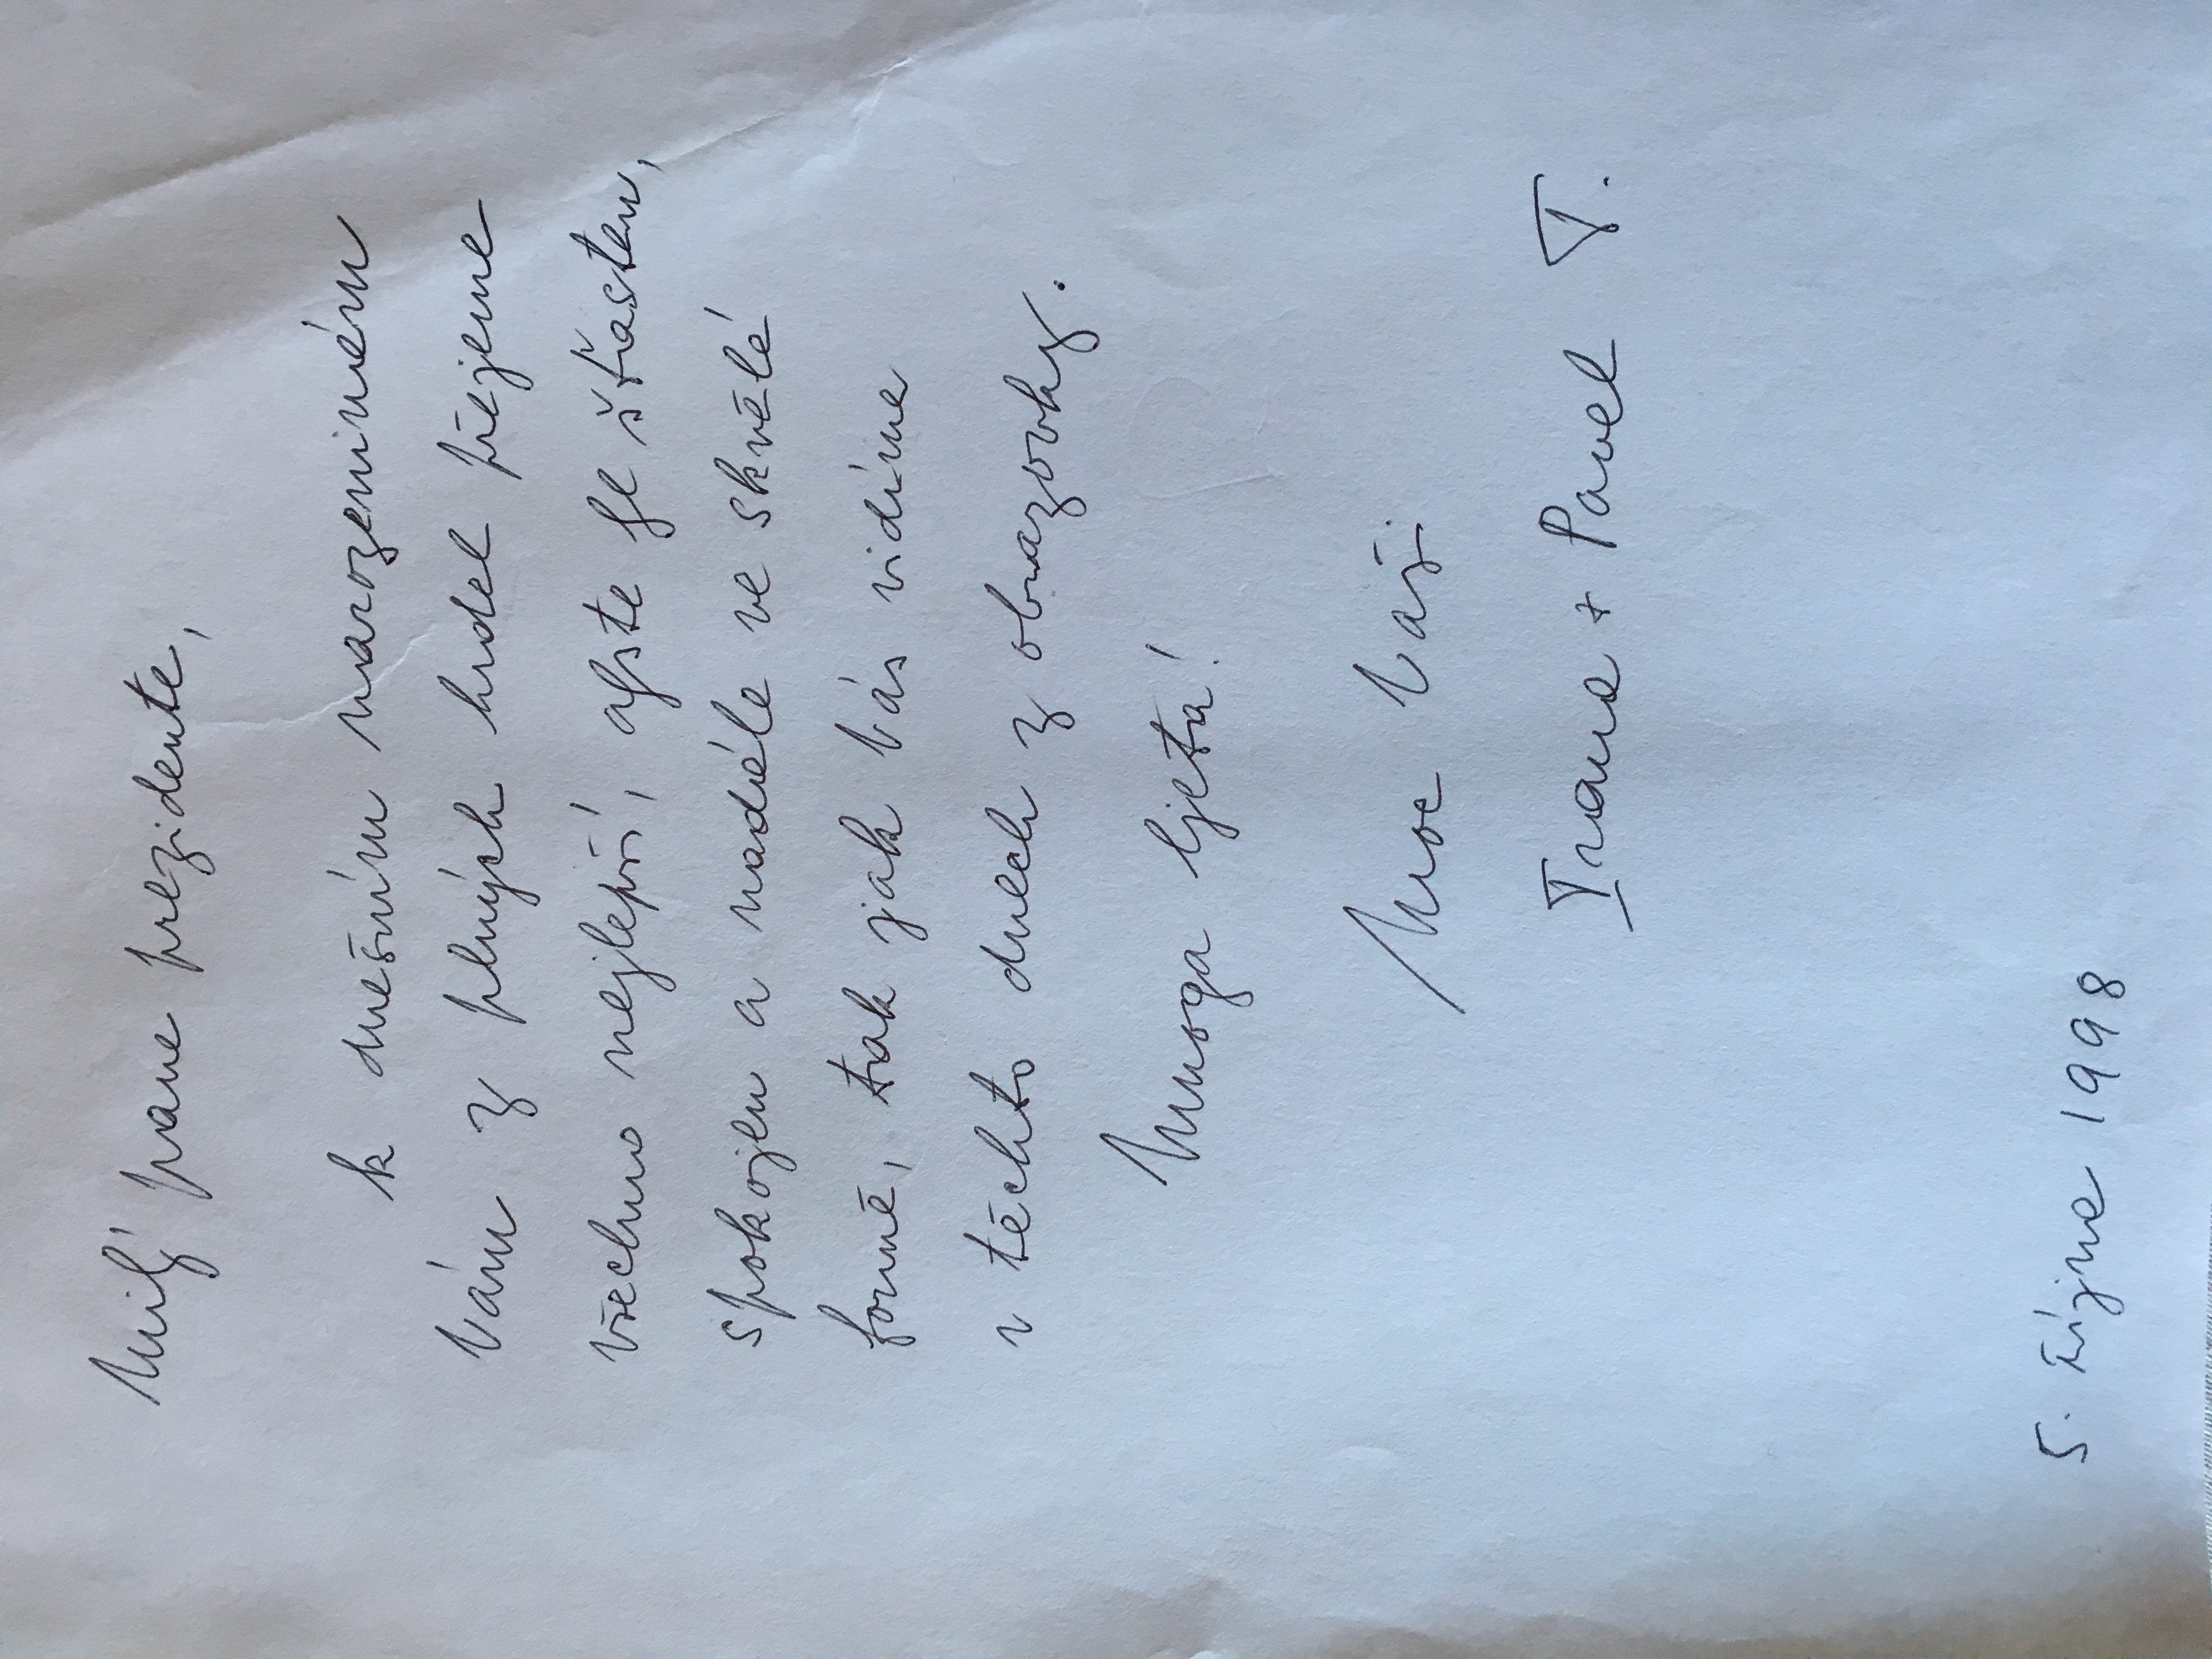 Milý pane prezidente,
k dnešním narozeninám
Vám z plných hrdel přejeme
všechno nejlepší, ať jste je šťasten,
spokojen a nadále ve skvělé
formě, tak jak Vás vidíme
v těchto dnech z obrazovky.
Mnoga ljeta!
Moc Vaši
Ivana + Pavel T.
5. října 1998